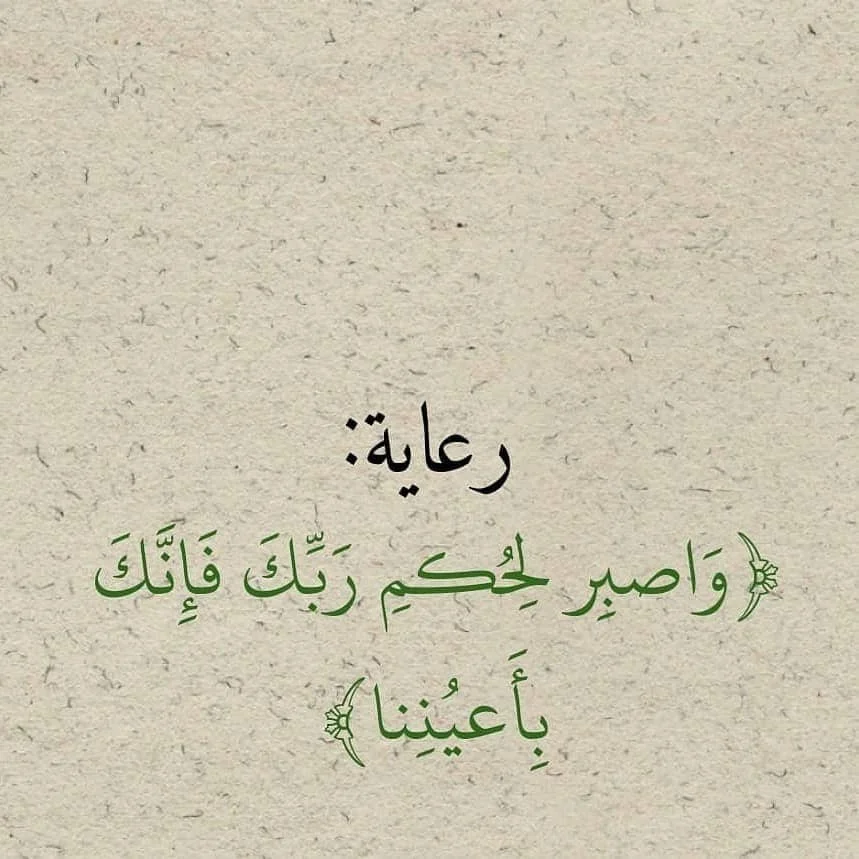 رعاية:
﴿وَاصبِر لِحُكمِ رَبِّكَ فَإِنَّكَ
بِأَعيُنِنا﴾